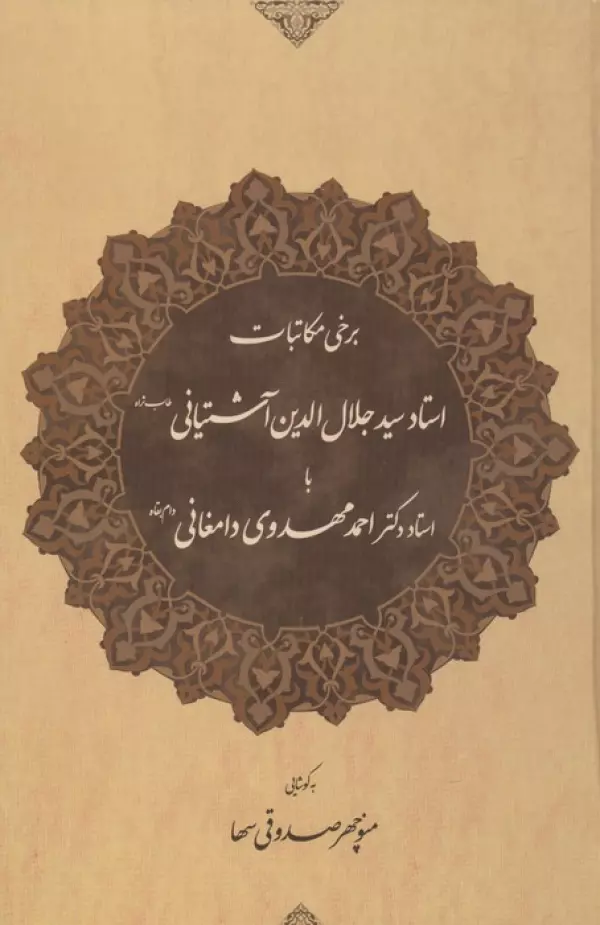 برخی مکاتبات
استاد سید جلال الدین آشتیانی طاب ثراه
با
استاد دکتر احمد مهدوی دامغانی دام بقاه
به کوشایی
منوچهر صدوقی سها